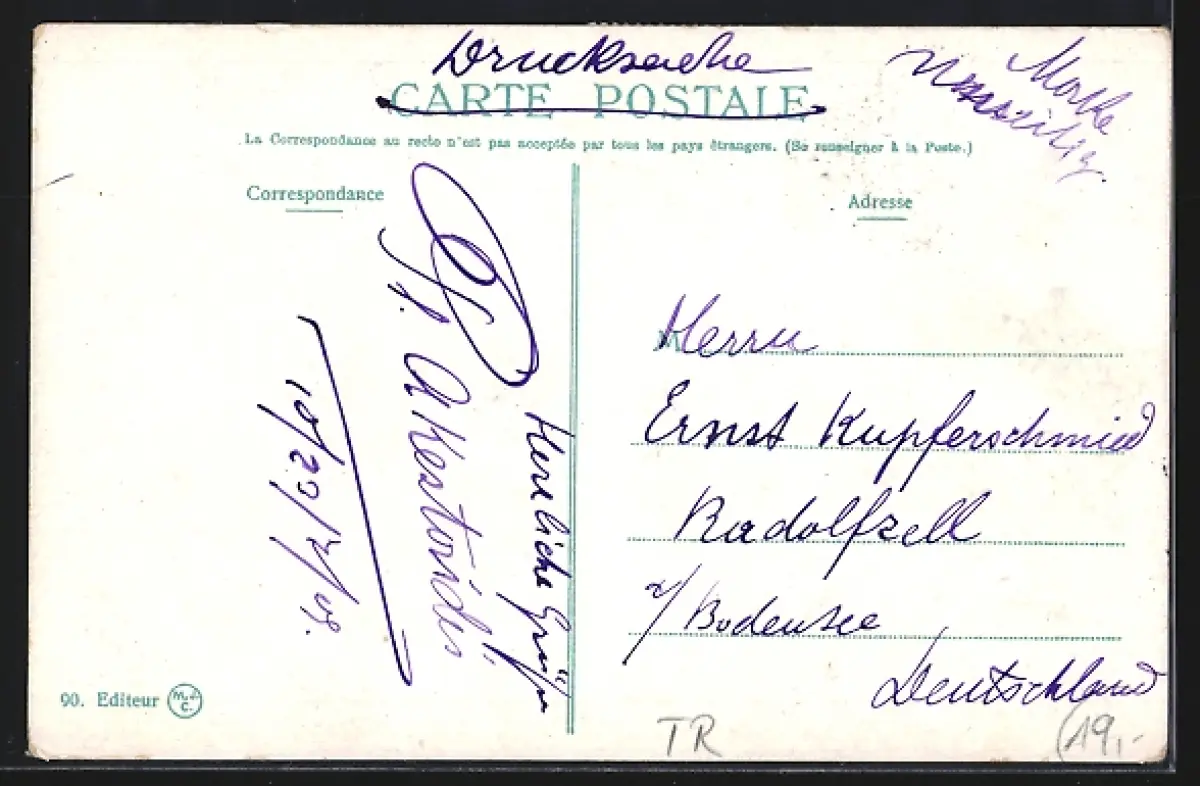 Drucksache
CARTE POSTALE
La Correspondance au recto n'est pas acceptée par tous les pays étrangers. (Se renseigner à la Poste.)
Correspondance
Adresse
Herzliche Grüße
10/23/V/09.
Herrn
Ernst Kupferschmied
Radolfzell
a/Bodensee
Deutschland
90. Editeur M.J.C.
TR
19,-